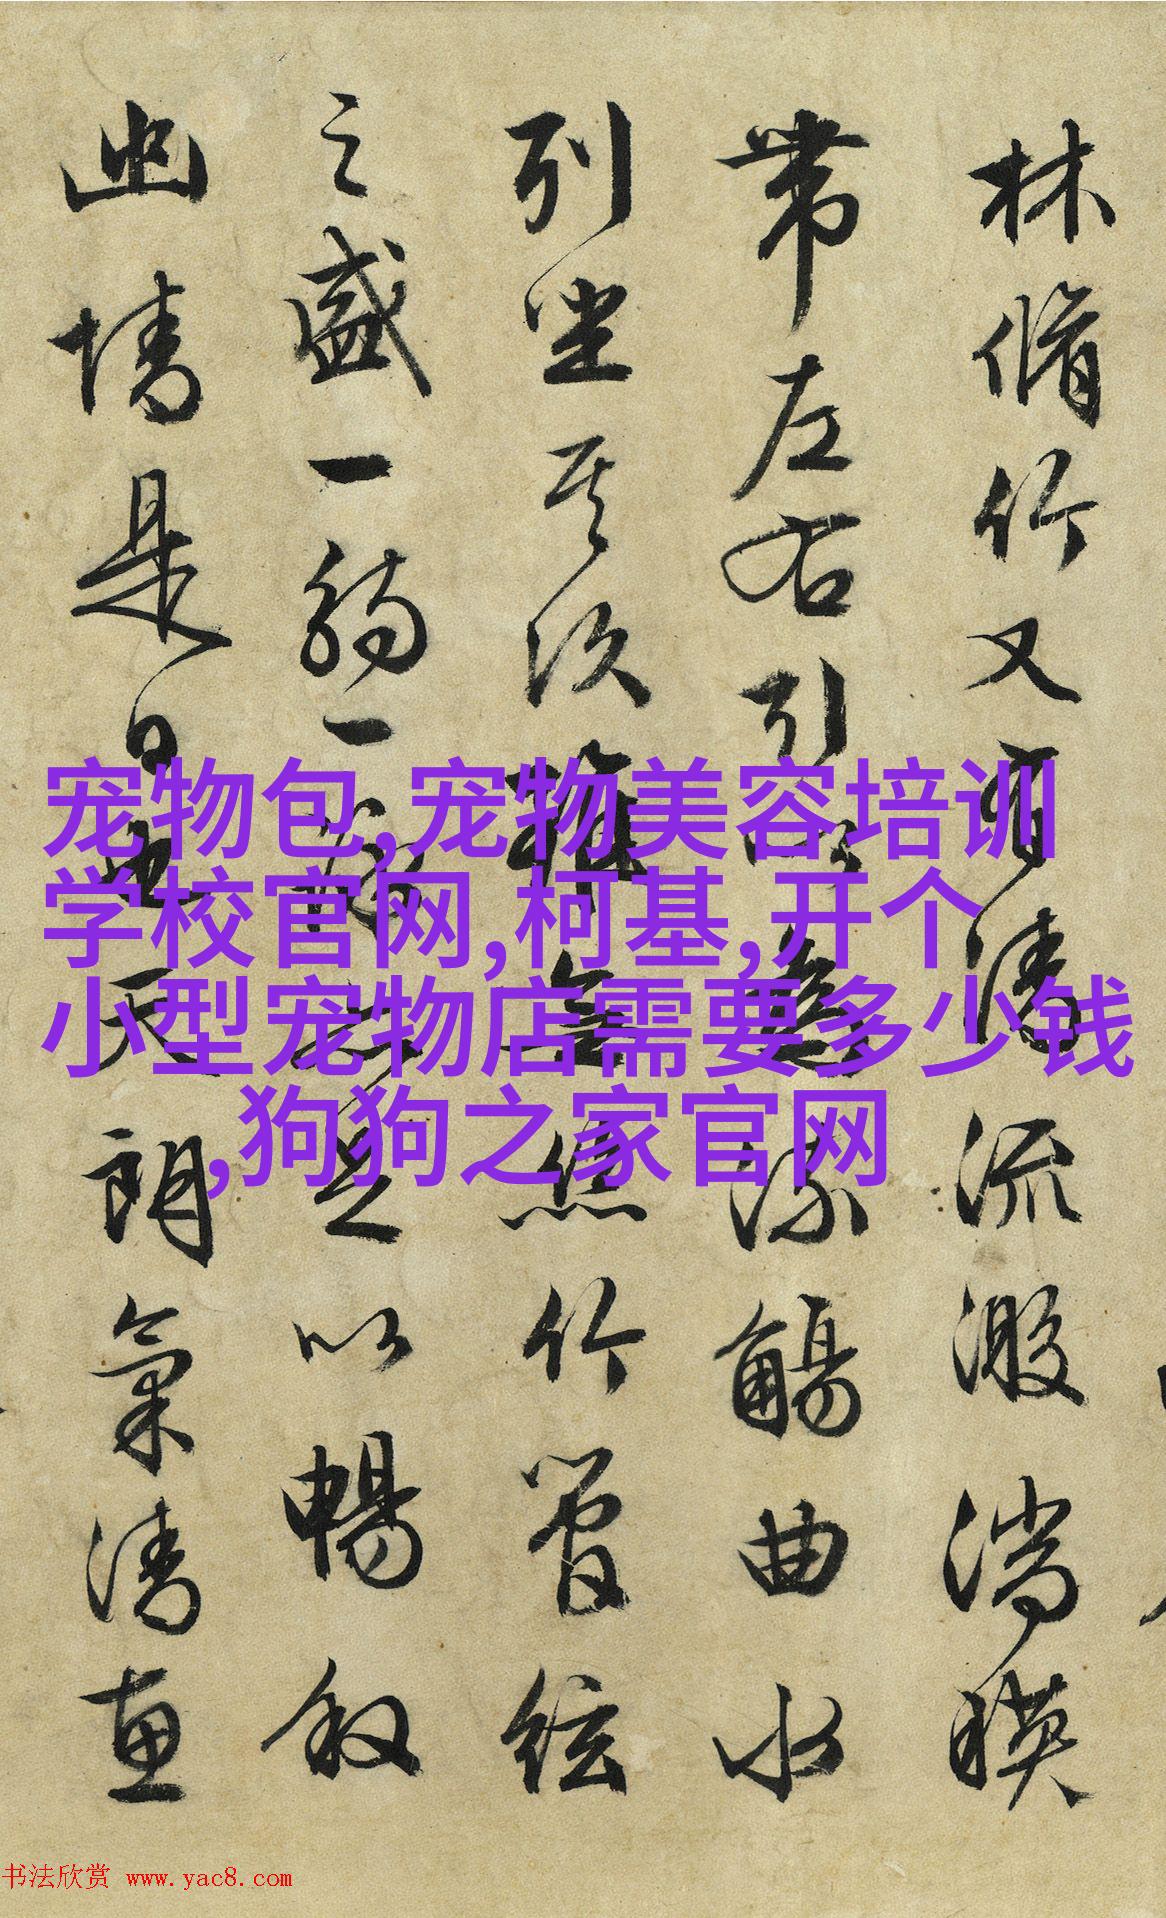 林脩竹又有清流激湍暎
帶左右引以為流觴曲水
列坐其次雖無絲竹管絃
之盛一觴一詠亦足以暢叙
幽情是日也天朗氣清惠
宠物包,宠物美容培训
学校官网,柯基,开个
小型宠物店需要多少钱
,狗狗之家官网
书法欣赏 www.yac8.com